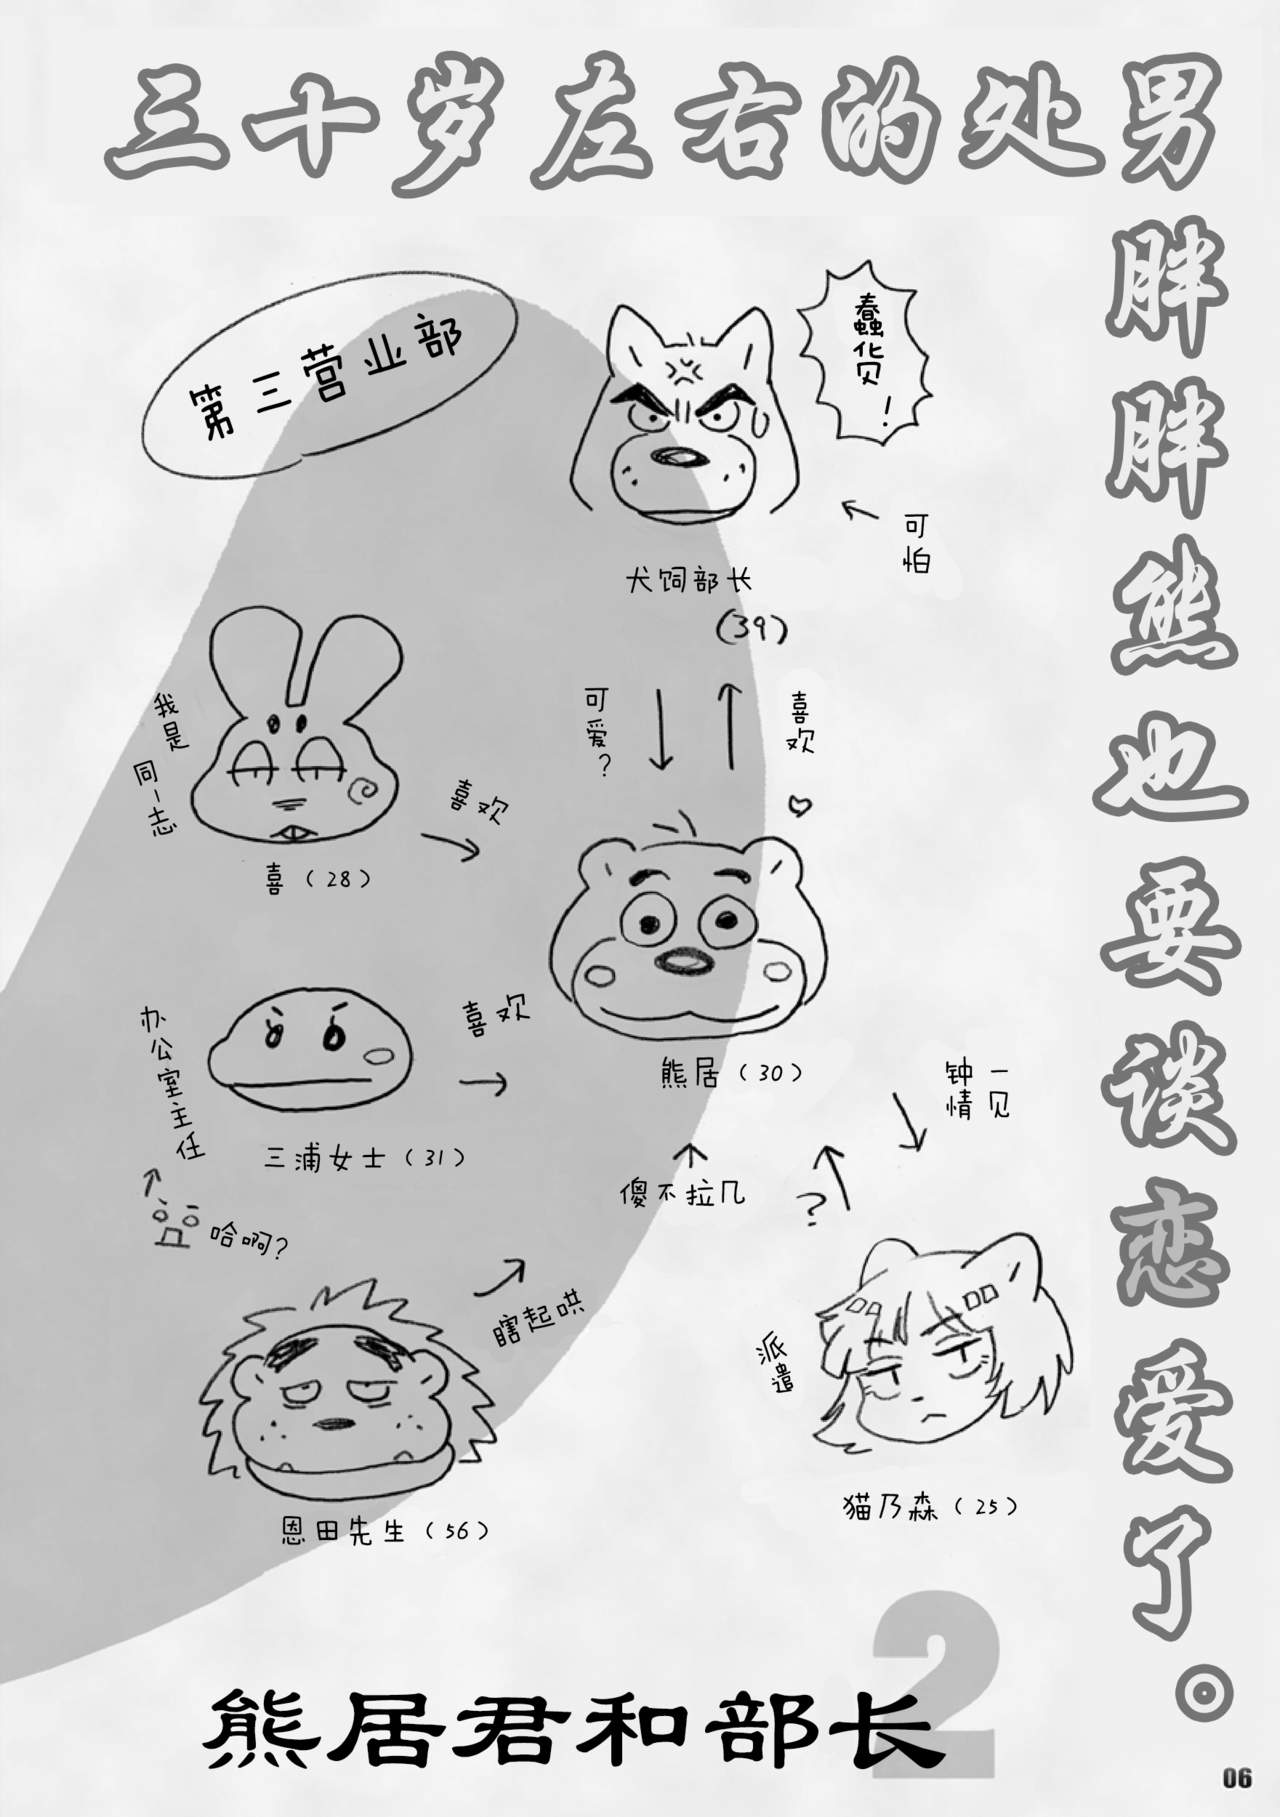 三十岁左右的处男
胖胖熊也要谈恋爱了。
第三营业部
蠢货！
可怕
犬饲部长
(39)
可爱？
喜欢
我是
同志
喜欢
喜（28）
办公室主任
喜欢
熊居（30）
三浦女士（31）
一见
钟情
傻不拉几
?
哈啊？
瞎起哄
派遣
恩田先生（56）
猫乃森（25）
2
熊居君和部长
06